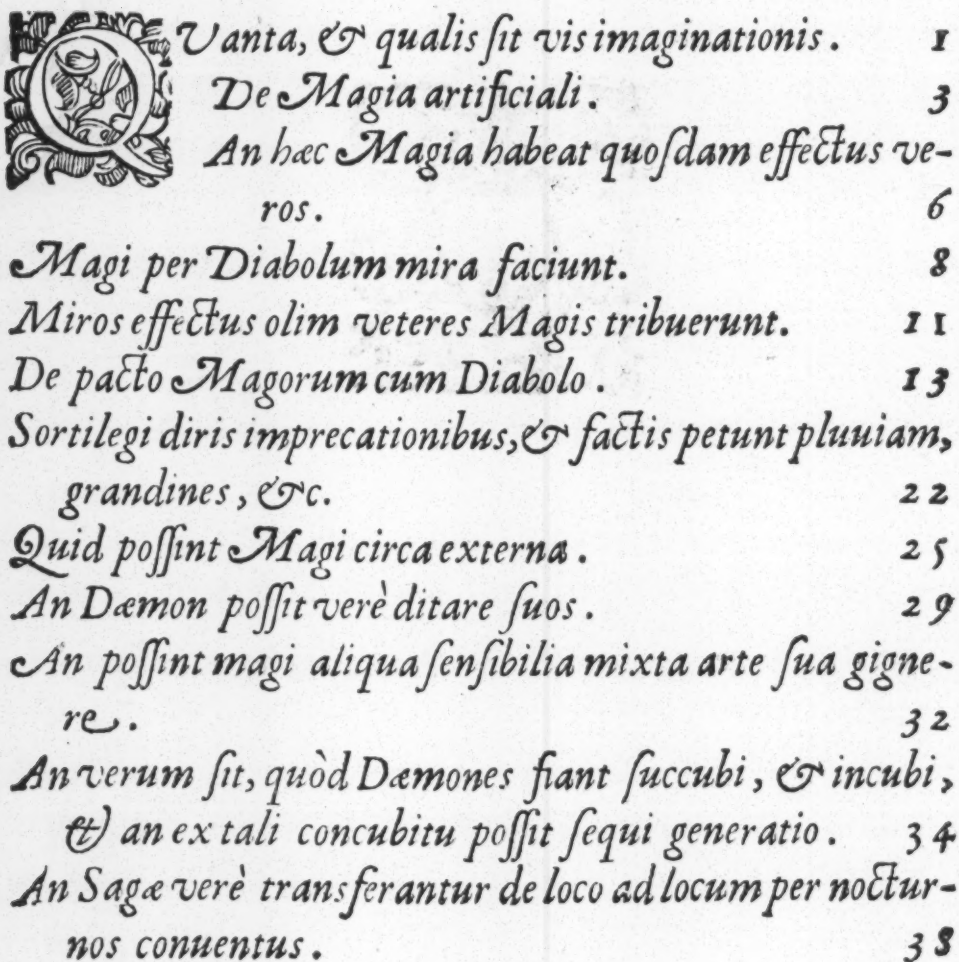 QVanta, & qualis ſit vis imaginationis. 1
De Magia artificiali. 3
An hæc Magia habeat quoſdam effectus ve-
ros. 6
Magi per Diabolum mira faciunt. 8
Miros effectus olim veteres Magis tribuerunt. 11
De pacto Magorum cum Diabolo. 13
Sortilegi diris imprecationibus, & factis petunt pluuiam,
grandines, &c. 22
Quid poſſint Magi circa externa. 25
An Dæmon poſſit verè ditare ſuos. 29
An poſſint magi aliqua ſenſibilia mixta arte ſua gigne-
re. 32
An verum ſit, quòd Dæmones fiant ſuccubi, & incubi,
& an ex tali concubitu poſſit ſequi generatio. 34
An Sagæ verè transferantur de loco ad locum per noctur-
nos conuentus. 38